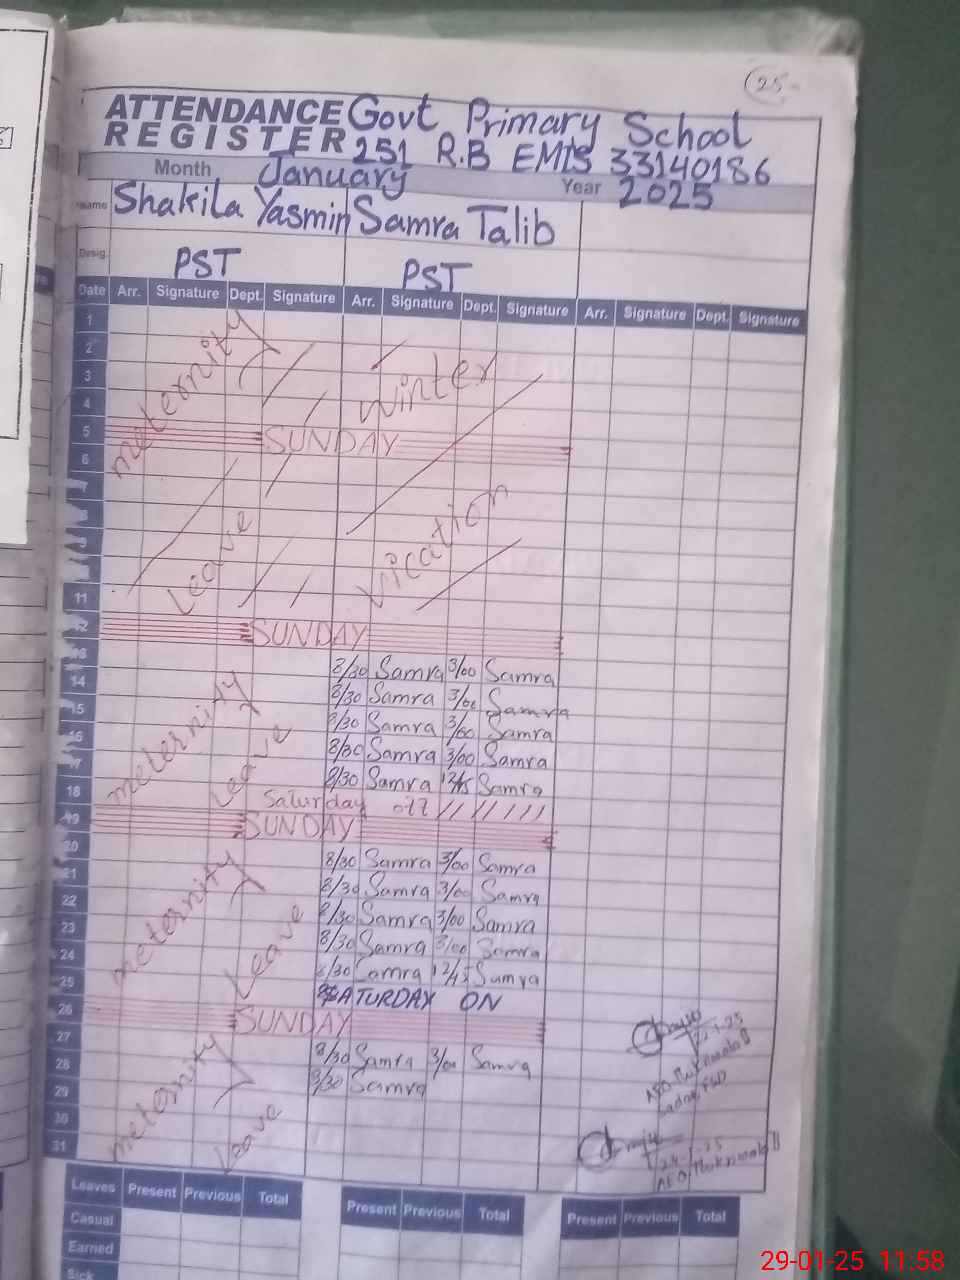 25
ATTENDANCE Govt Primary School
REGISTER 251 R.B EMIS 33140186
Month January Year 2025
Name Shakila Yasmin Samra Talib
Desig. PST PST
Date Arr. Signature Dept. Signature Arr. Signature Dept. Signature Arr. Signature Dept. Signature
1
2
3
4
meternity Leave
Winter Vication
5 SUNDAY
6
11
12 SUNDAY
8/30 Samra 3/00 Samra
14 8/30 Samra 3/00 Samra
15 8/30 Samra 3/00 Samra
16 8/30 Samra 3/00 Samra
17 8/30 Samra 12/15 Samra
18 Saturday off
meternity Leave
19 SUNDAY
20 8/30 Samra 3/00 Samra
21 8/30 Samra 3/00 Samra
22 8/30 Samra 3/00 Samra
23 8/30 Samra 3/00 Samra
24 8/30 Samra 12/15 Samra
25 SATURDAY ON
meternity Leave
26 SUNDAY
27 8/30 Samra 3/00 Samra
28 8/30 Samra
29
30
31
meternity Leave
Leaves Present Previous Total Present Previous Total Present Previous Total
Casual
Earned
Sick
29-01-25 11:58